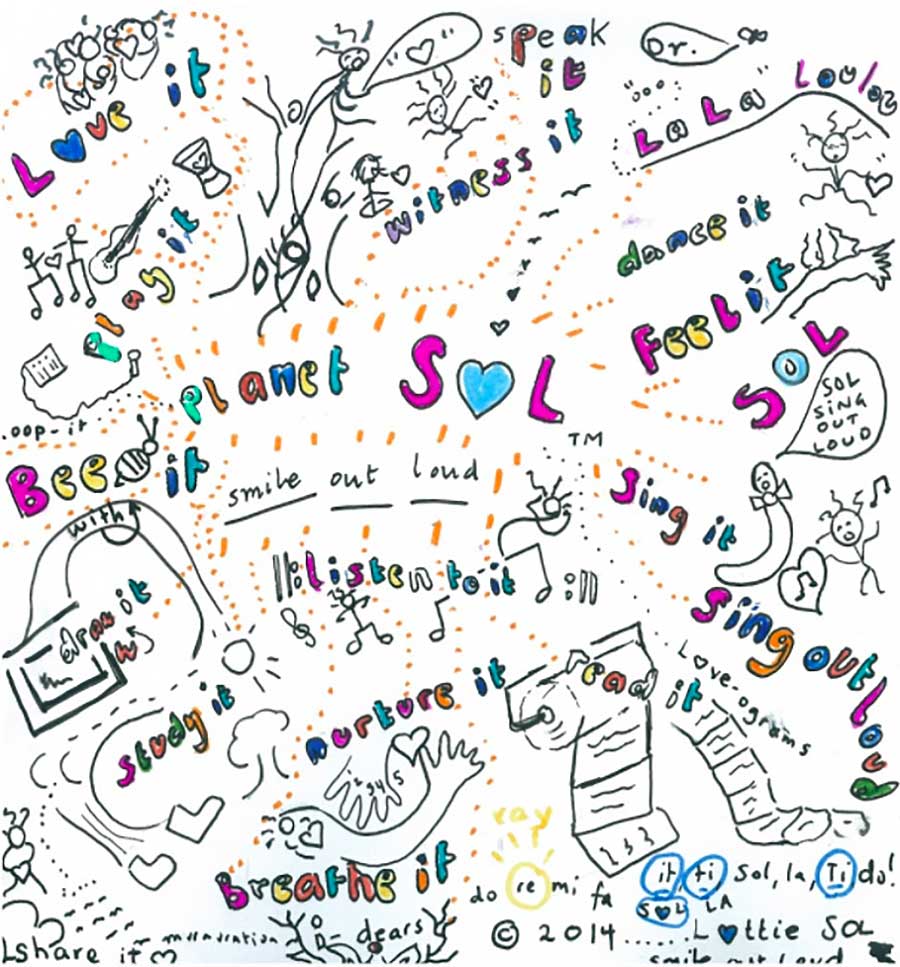 Love it
speak
it
Dr.
La La Loulou
witness it
dance it
play it
Feel it
planet SOL
SOL
SOL
SING
OUT
LOUD
oop-it
Bee it
TM
smile out loud
Sing it
with
listen to it
draw it
Sing out loud
read it
Love-ograms
study it
nurture it
ray
Breathe it
do re mi fa
it, ti, Sol, la, Ti do!
SOL LA
dears
© 2014...... Lottie SOL
share it
smile out loud